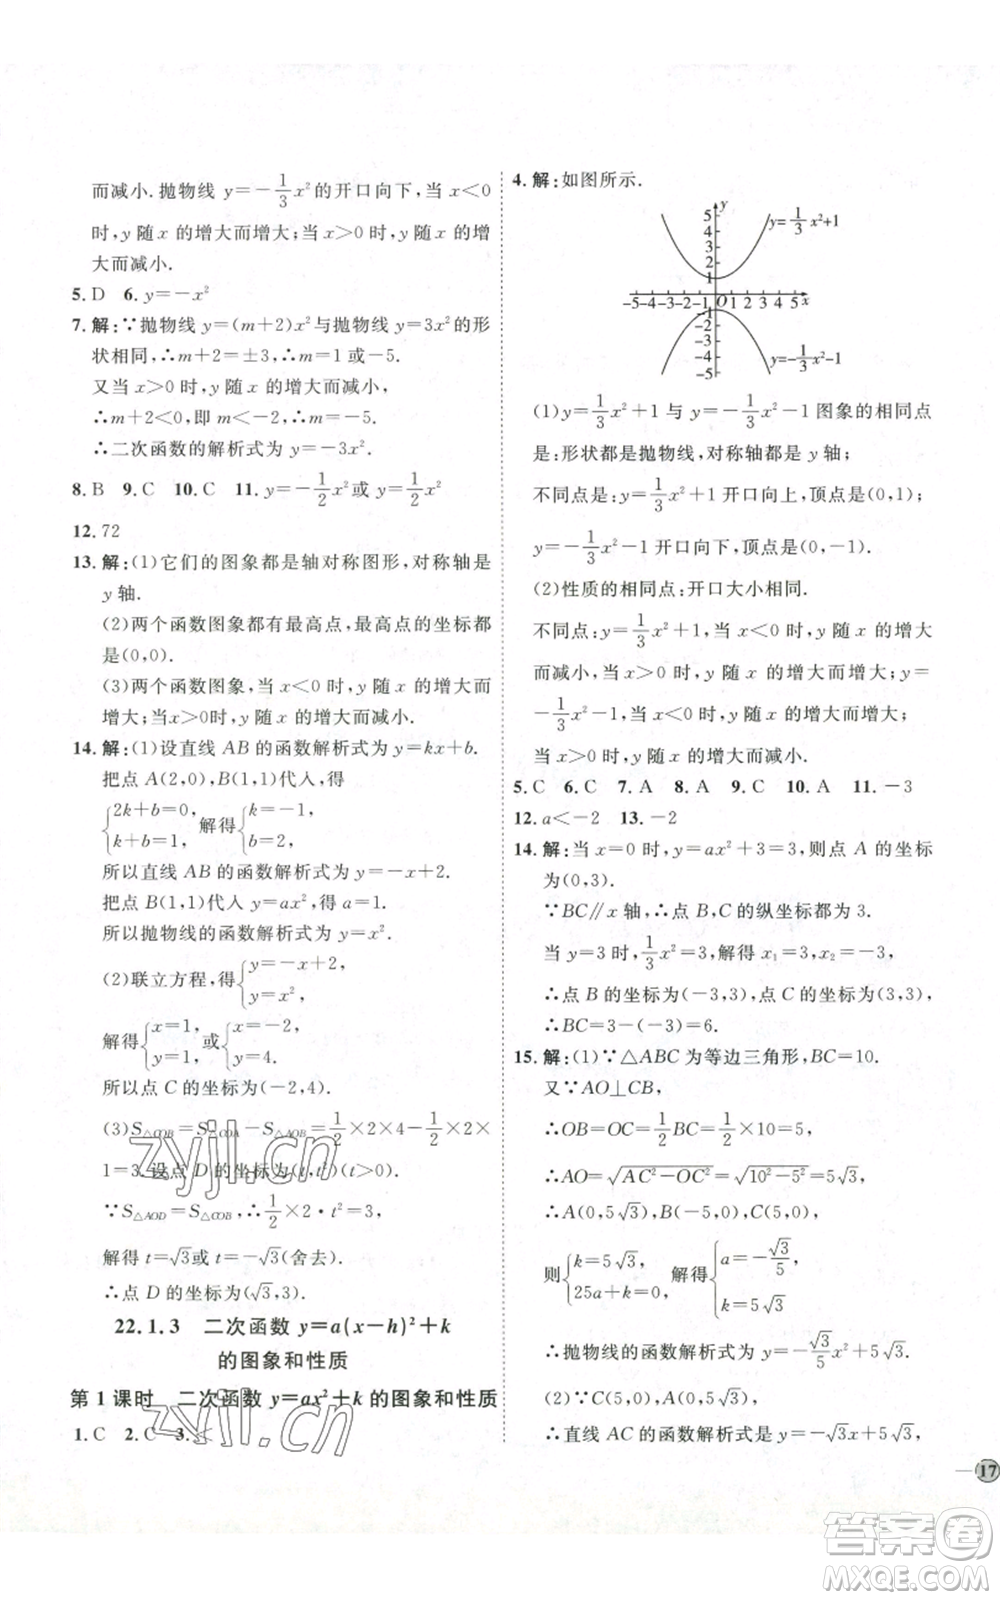 而减小.抛物线 y=-\frac{1}{3}x²的开口向下,当 x<0
时,y 随 x 的增大而增大;当 x>0 时,y 随 x 的增
大而减小.
5.D 6.y=-x²
7.解:∵抛物线 y=(m+2)x²与抛物线 y=3x²的形
状相同,∴m+2=±3,∴m=1 或-5.
又当 x>0 时,y 随 x 的增大而减小,
∴m+2<0,即 m<-2,∴m=-5.
∴二次函数的解析式为 y=-3x².
8.B 9.C 10.C 11.y=-\frac{1}{2}x²或 y=\frac{1}{2}x²
12.72
13.解:(1)它们的图象都是轴对称图形,对称轴是
y 轴.
(2)两个函数图象都有最高点,最高点的坐标都
是(0,0).
(3)两个函数图象,当 x<0 时,y 随 x 的增大而
增大;当x>0时,y 随 x 的增大而减小.
14.解:(1)设直线 AB 的函数解析式为 y=kx+b.
把点 A(2,0),B(1,1)代入,得
{2k+b=0, k+b=1, 解得{k=-1, b=2.
所以直线 AB 的函数解析式为 y=-x+2.
把点 B(1,1)代入 y=ax²,得 a=1.
所以抛物线的函数解析式为 y=x².
(2)联立方程,得{y=-x+2, y=x²,
解得{x=1, y=1, 或{x=-2, y=4.
所以点 C 的坐标为(-2,4).
(3)S△COB=S△COA-S△AOB=\frac{1}{2}×2×4-\frac{1}{2}×2×
1=3.设点 D 的坐标为(t,t²)(t>0).
∵S△AOD=S△COB,∴\frac{1}{2}×2·t²=3,
解得 t=√3或 t=-√3(舍去).
∴点 D 的坐标为(√3,3).
22.1.3 二次函数 y=a(x-h)²+k
的图象和性质
第 1 课时 二次函数 y=ax²+k 的图象和性质
1.C 2.C 3.
zyjl.cn
zyjl.cn
4.解:如图所示.
y
y=\frac{1}{3}x²+1
5
4
3
2
1
-5-4-3-2-1 O 1 2 3 4 5 x
-1
-2
-3
-4
-5
y=-\frac{1}{3}x²-1
(1)y=\frac{1}{3}x²+1 与 y=-\frac{1}{3}x²-1 图象的相同点
是:形状都是抛物线,对称轴都是 y 轴;
不同点是:y=\frac{1}{3}x²+1 开口向上,顶点是(0,1);
y=-\frac{1}{3}x²-1 开口向下,顶点是(0,-1).
(2)性质的相同点:开口大小相同.
不同点:y=\frac{1}{3}x²+1,当 x<0 时,y 随 x 的增大
而减小,当 x>0 时,y 随 x 的增大而增大;y=
-\frac{1}{3}x²-1,当 x<0 时,y 随 x 的增大而增大,
当 x>0 时,y 随 x 的增大而减小.
5.C 6.C 7.A 8.A 9.C 10.A 11.-3
12.a<-2 13.-2
14.解:当 x=0 时,y=ax²+3=3,则点 A 的坐标
为(0,3).
∵BC∥x 轴,∴点 B,C 的纵坐标都为 3.
当 y=3 时,\frac{1}{3}x²=3,解得 x₁=3,x₂=-3,
∴点 B 的坐标为(-3,3),点 C 的坐标为(3,3),
∴BC=3-(-3)=6.
15.解:(1)∵△ABC 为等边三角形,BC=10.
又∵AO⊥CB,
∴OB=OC=\frac{1}{2}BC=\frac{1}{2}×10=5,
∴AO=√(AC²-OC²)=√(10²-5²)=5√3,
∴A(0,5√3),B(-5,0),C(5,0),
则{k=5√3, 25a+k=0, 解得{a=-\frac{√3}{5}, k=5√3,
∴抛物线的函数解析式为 y=-\frac{√3}{5}x²+5√3.
(2)∵C(5,0),A(0,5√3),
∴直线 AC 的函数解析式是 y=-√3x+5√3,
17
答案卷
MXQE.COM